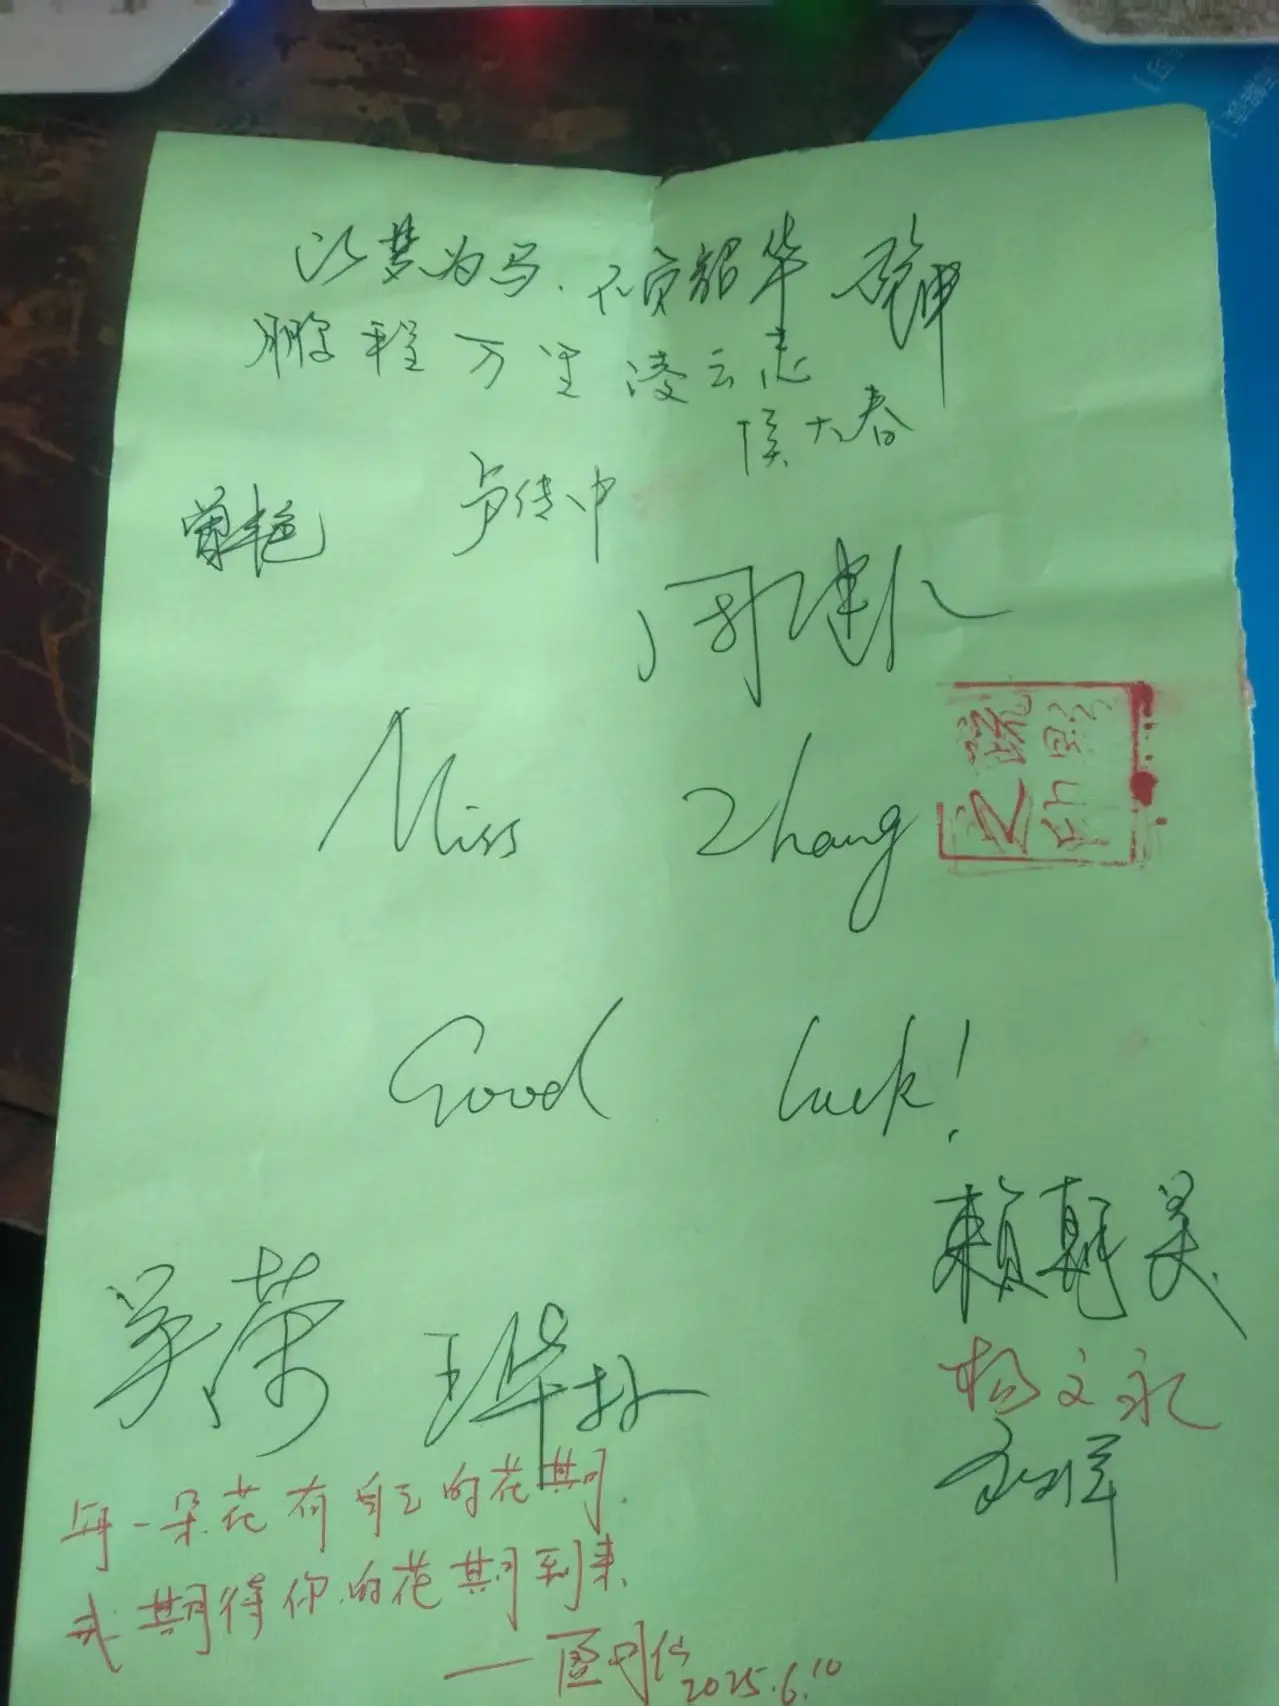 以梦为马.不负韶华
鹏程万里凌云志
侯大春
曾艳
卢传中
周建仁
Miss Zhang
疏影
之印
Good luck!
吴荣
赖朝昊
王华林
杨文永
每一朵花有自己的花期.
我期待你的花期到来.
2025.6.10